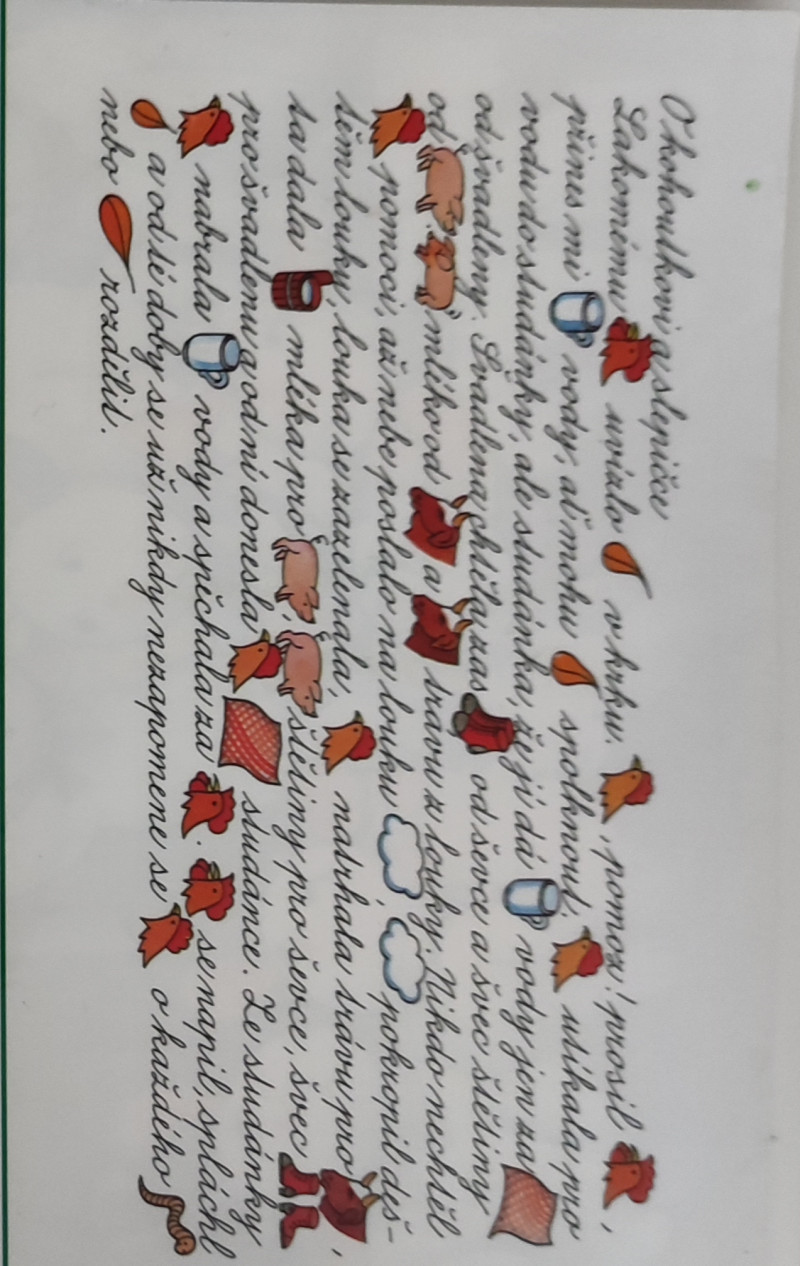 O kohoutkovi a slepičce
Lakomému uvízlo v krku. , pomoz! prosil ,
přines mi vody, ať mohu spolknout. utíkala pro
vodu do studánky, ale studánka, že jí dá vody jen za
od švadleny. Švadlena chtěla zas od ševce a švec štětiny
od . mléko od a trávu z louky. Nikdo nechtěl
pomoci, až nebe poslalo na louku , pokropil deš-
těm louky, louka se zazelenala, natrhala trávu pro ,
ta dala mléka pro , štětiny pro ševce, švec
pro švadlenu a od ní donesla studánce. Ze studánky
nabrala vody a spěchala za . se napil, spláchl
a od té doby se už nikdy nezapomene se o každého
nebo rozdělit.